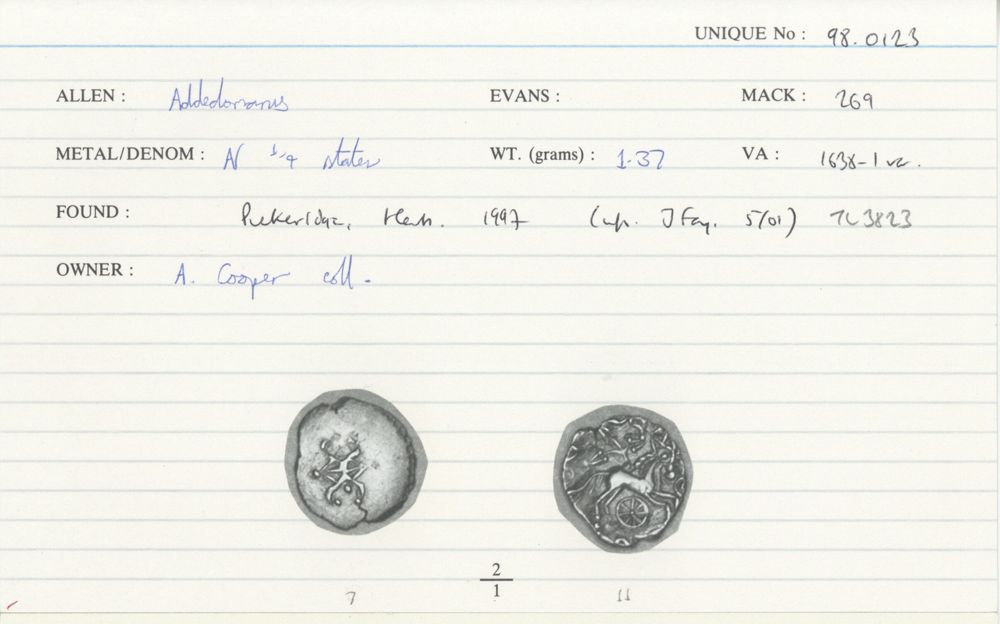 UNIQUE No : 98.0123
ALLEN : Addedomarus EVANS : MACK : 269
METAL/DENOM : N 1/4 stater WT. (grams) : 1.37 VA : 1638-1 var.
FOUND : Puckeridge, Herts. 1997 J Fay, 5/01) TL3823
OWNER : A. Cooper coll.
2
1
7 11